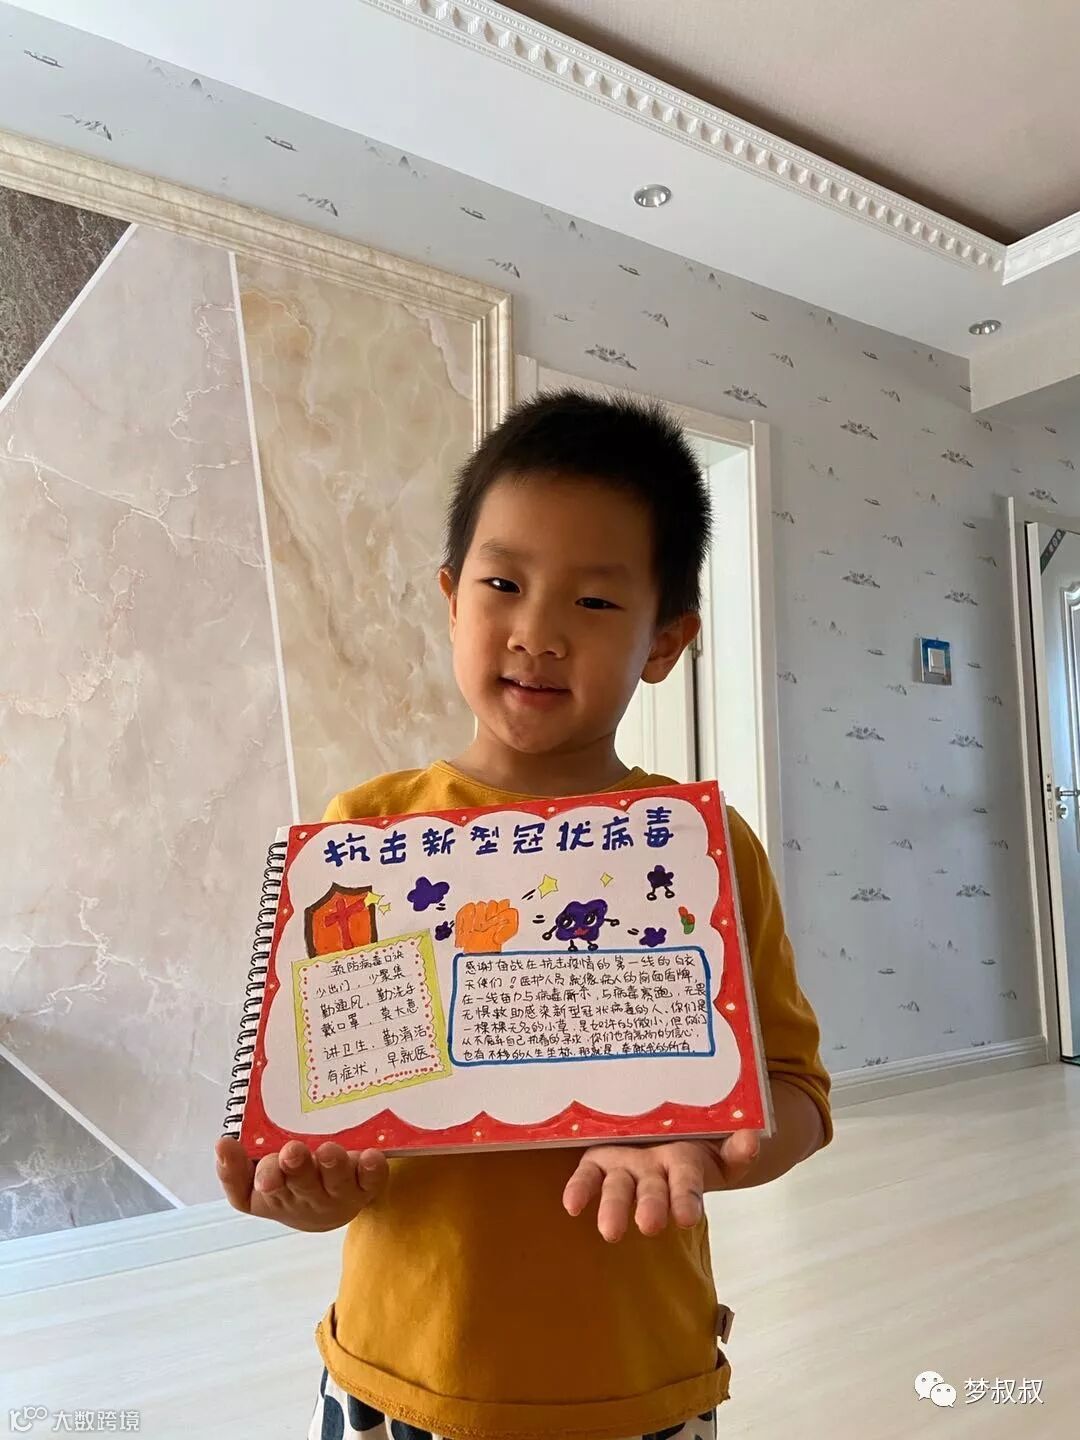 抗击新型冠状病毒
预防病毒口诀
少出门，少聚集
勤通风，勤洗手
戴口罩，莫大意
讲卫生，勤清洁
有症状，早就医
感谢奋战在抗击疫情的第一线的白衣
天使们！医护人员就像病人的前面盾牌，
在一线奋力与病毒厮杀，与病毒赛跑，无畏
无惧救助感染新型冠状病毒的人，你们是
一棵棵无名的小草，是如许的微小，但你们
从不放弃自己执着的寻求，你们也有高的信心，
也有不移的人生坐标，那就是，奉献我的所有。
梦叔叔
大数跨境